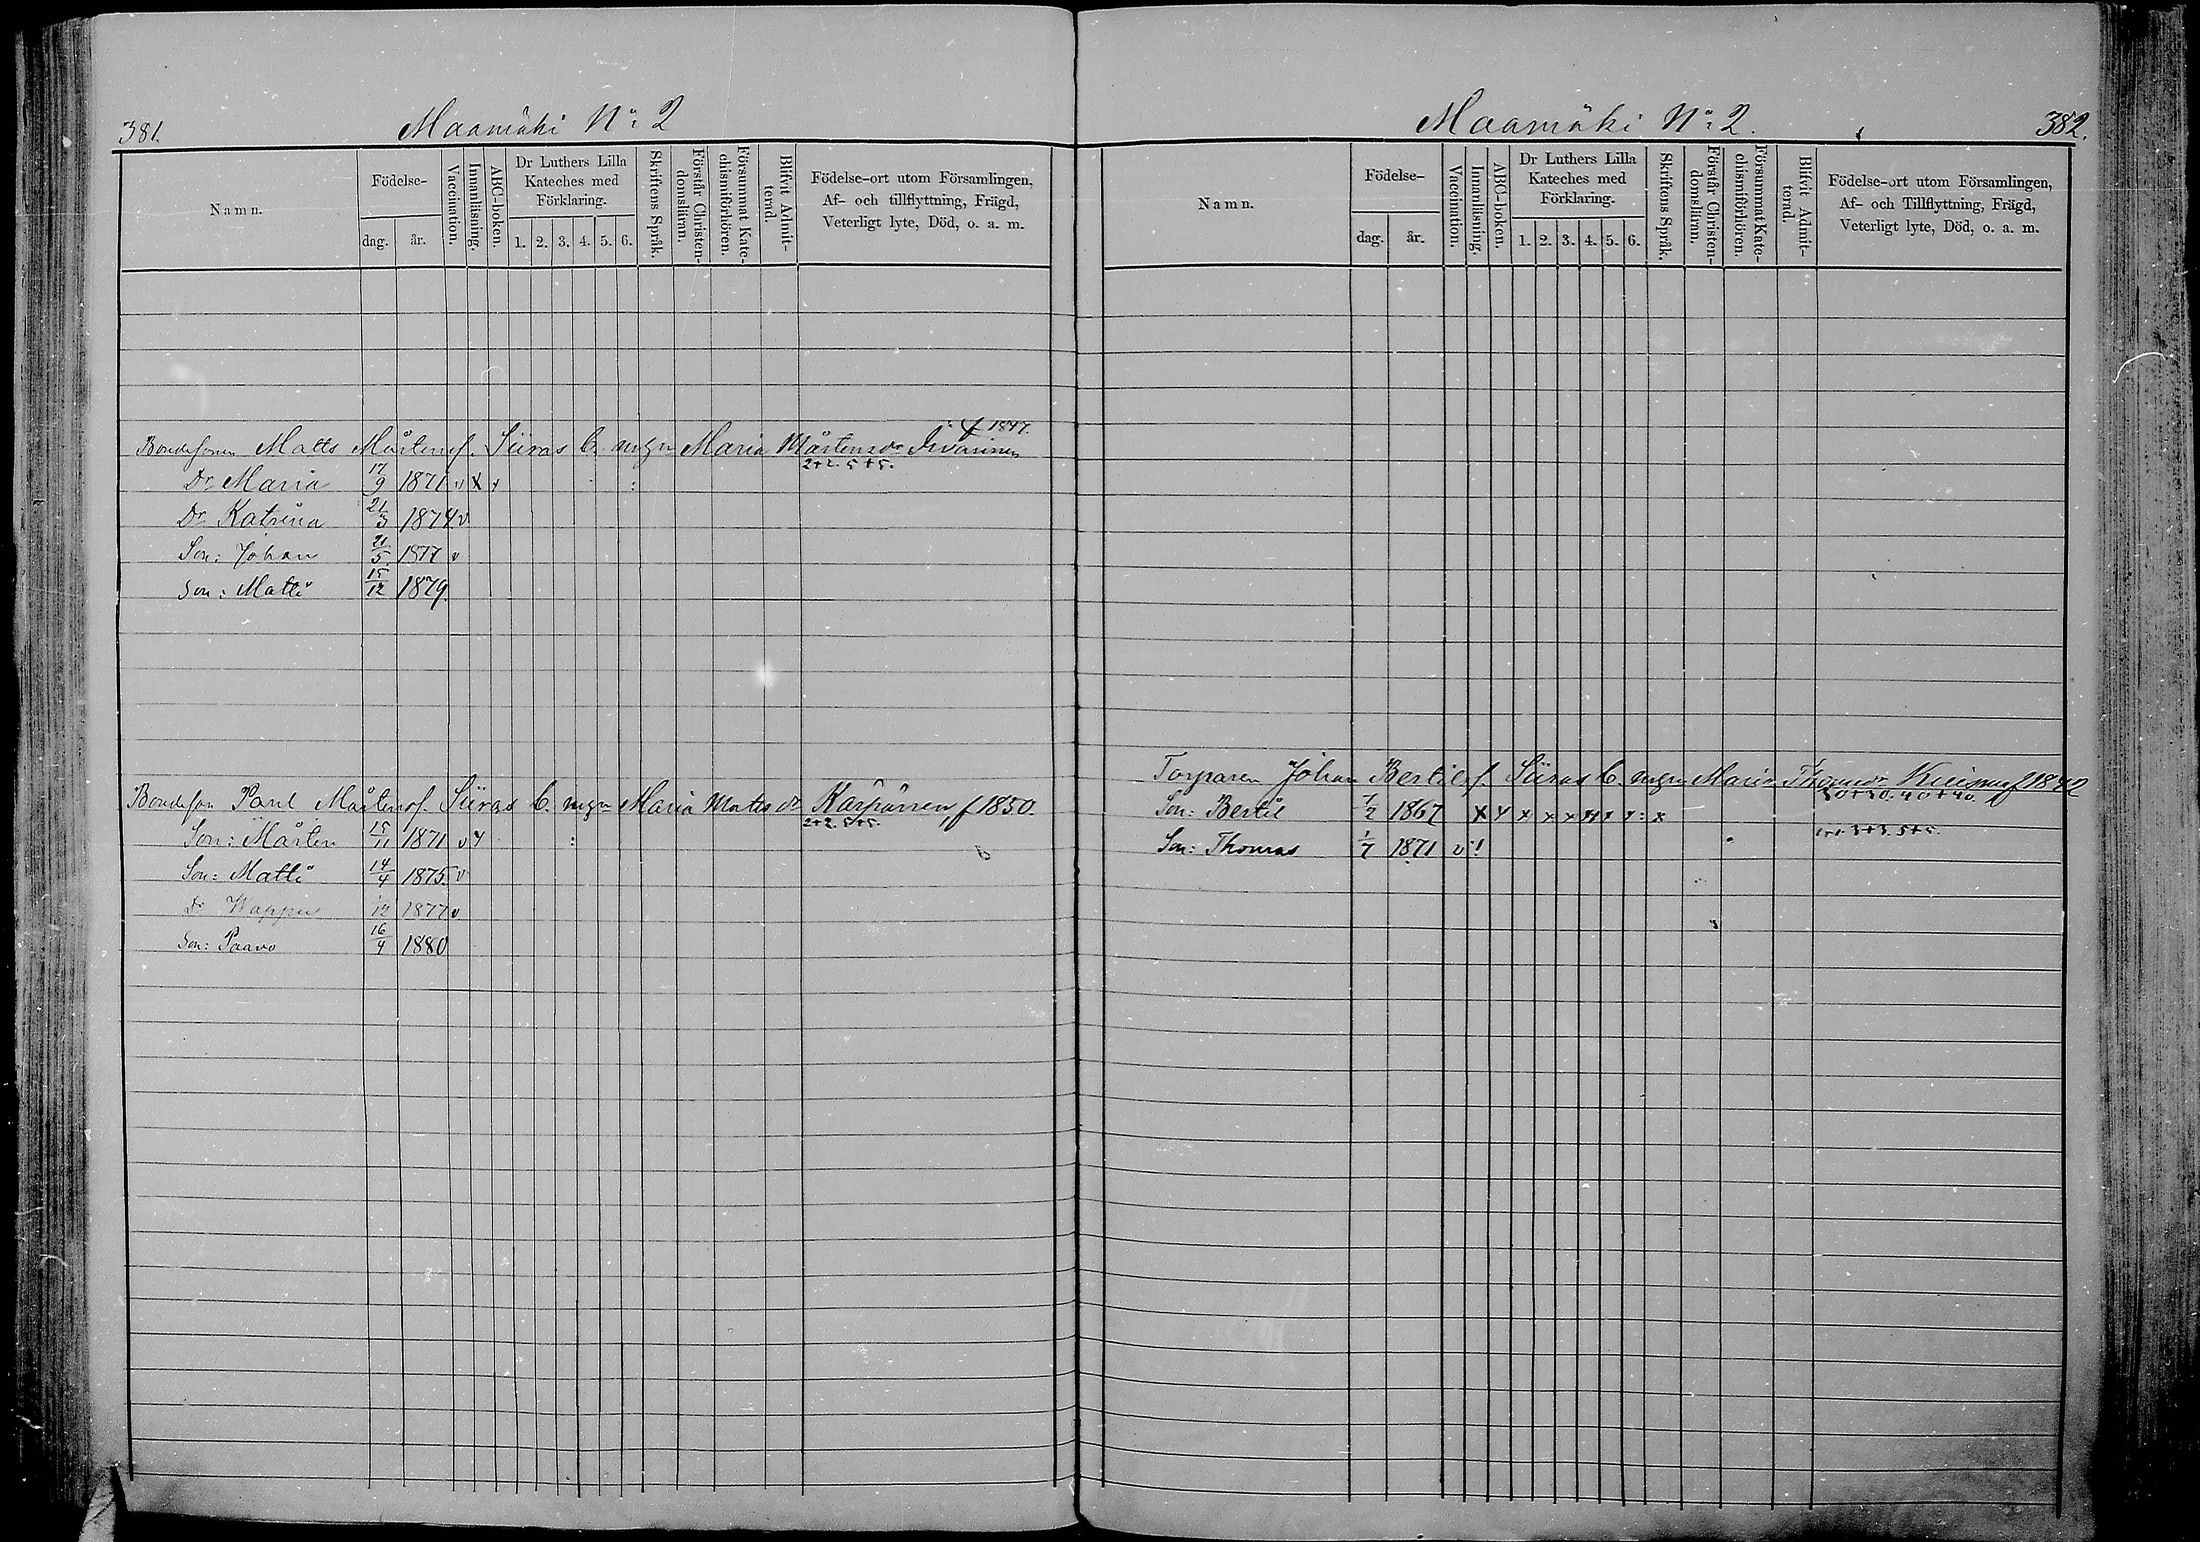 381.
Maamäki No 2
Namn.
Födelse-
dag.
år.
Vaccination.
Innanläsning.
ABC-boken.
Dr Luthers Lilla
Kateches med
Förklaring.
1. 2. 3. 4. 5. 6.
Skriftens Språk.
Förstår Christen-
domsläran.
Försummat Kate-
chismiförhören.
Blifvit Admit-
terad.
Födelse-ort utom Församlingen,
Af- och tillflyttning, Frägd,
Veterligt lyte, Död, o. a. m.
f 1847.
Bondesonen Matts Mårtensf. Siiras b. m. hgn Maria Mårtensdr
2+2. 5+5.
Dr Maria 17/9 1871 v x x
Dr Katrina 21/3 1874 v
Son: Johan 21/5 1877 v
Son: Matti 15/12 1879.
Bondeson Paul Mårtensf. Siiras b. m. hgn Maria Matts dr Karpänen, f 1850.
2+2. 5+5.
Son: Mårten 15/11 1871 v
Son: Matti 14/4 1875. v
Dr Wappu 1/12 1877 v
Son: Paavo 16/4 1880
Maamäki No 2.
382.
Namn.
Födelse-
dag.
år.
Vaccination.
Innanläsning.
ABC-boken.
Dr Luthers Lilla
Kateches med
Förklaring.
1. 2. 3. 4. 5. 6.
Skriftens Språk.
Förstår Christen-
domsläran.
Försummat Kate-
chismiförhören.
Blifvit Admit-
terad.
Födelse-ort utom Församlingen,
Af- och Tillflyttning, Frägd,
Veterligt lyte, Död, o. a. m.
Torparen Johan Bertilsf. Siiras b. m. hgn Maria Thomsdr f 1842
Son: Bertil 1/2 1867 x x x x x x x x : x
1+1. 3+3. 5+5.
Son: Thomas 1/7 1871 v !